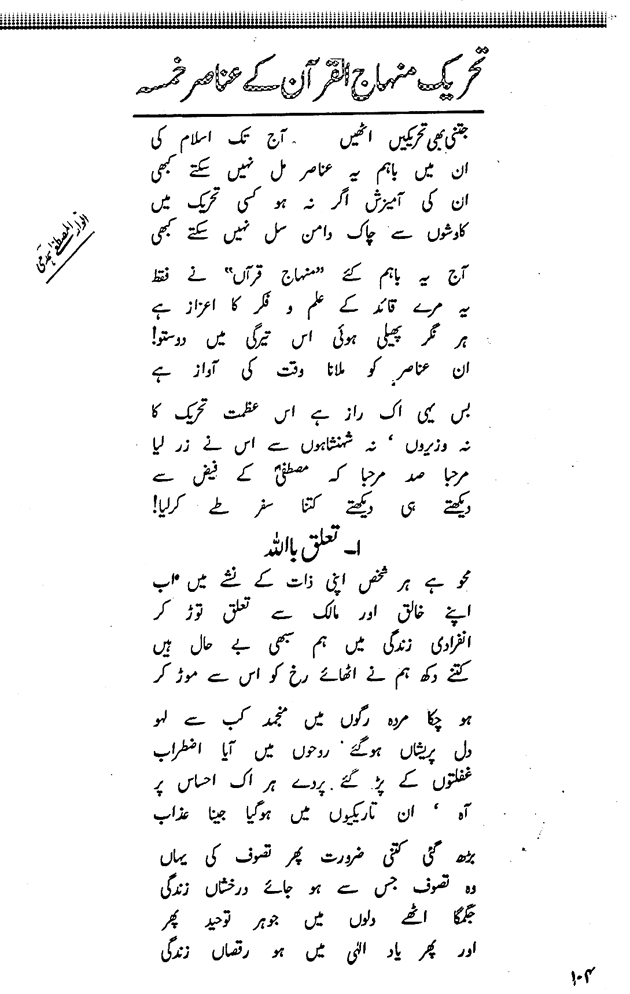 تحریک منہاج القرآن کے عناصر خمسہ
جتنی بھی تحریکیں اٹھیں آج تک اسلام کی
ان میں باہم یہ عناصر مل نہیں سکتے کبھی
ان کی آمیزش اگر نہ ہو کسی تحریک میں
کاوشوں سے چاک دامن سل نہیں سکتے کبھی
انوار المصطفیٰ ہمدمی
آج یہ باہم کئے "منہاج قرآں" نے فقط
یہ مرے قائد کے علم و فکر کا اعزاز ہے
ہر نگر پھیلی ہوئی اس تیرگی میں دوستو!
ان عناصر کو ملانا وقت کی آواز ہے
بس یہی اک راز ہے اس عظمت تحریک کا
نہ وزیروں ' نہ شہنشاہوں سے اس نے زر لیا
مرحبا صد مرحبا کہ مصطفیؐ کے فیض سے
دیکھتے ہی دیکھتے کتنا سفر طے کرلیا!
۱۔ تعلق باللہ
محو ہے ہر شخص اپنی ذات کے نشے میں اب
اپنے خالق اور مالک سے تعلق توڑ کر
انفرادی زندگی میں ہم سبھی بے حال ہیں
کتنے دکھ ہم نے اٹھائے رخ کو اس سے موڑ کر
ہو چکا مردہ رگوں میں منجمد کب سے لہو
دل پریشاں ہوگئے ' روحوں میں آیا اضطراب
غفلتوں کے پڑ گئے پردے ہر اک احساس پر
آہ ' ان تاریکیوں میں ہوگیا جینا عذاب
بڑھ گئی کتنی ضرورت پھر تصوف کی یہاں
وہ تصوف جس سے ہو جائے درخشاں زندگی
جگمگا اٹھے دلوں میں جوہر توحید پھر
اور پھر یاد الٰہی میں ہو رقصاں زندگی
۱۰۴